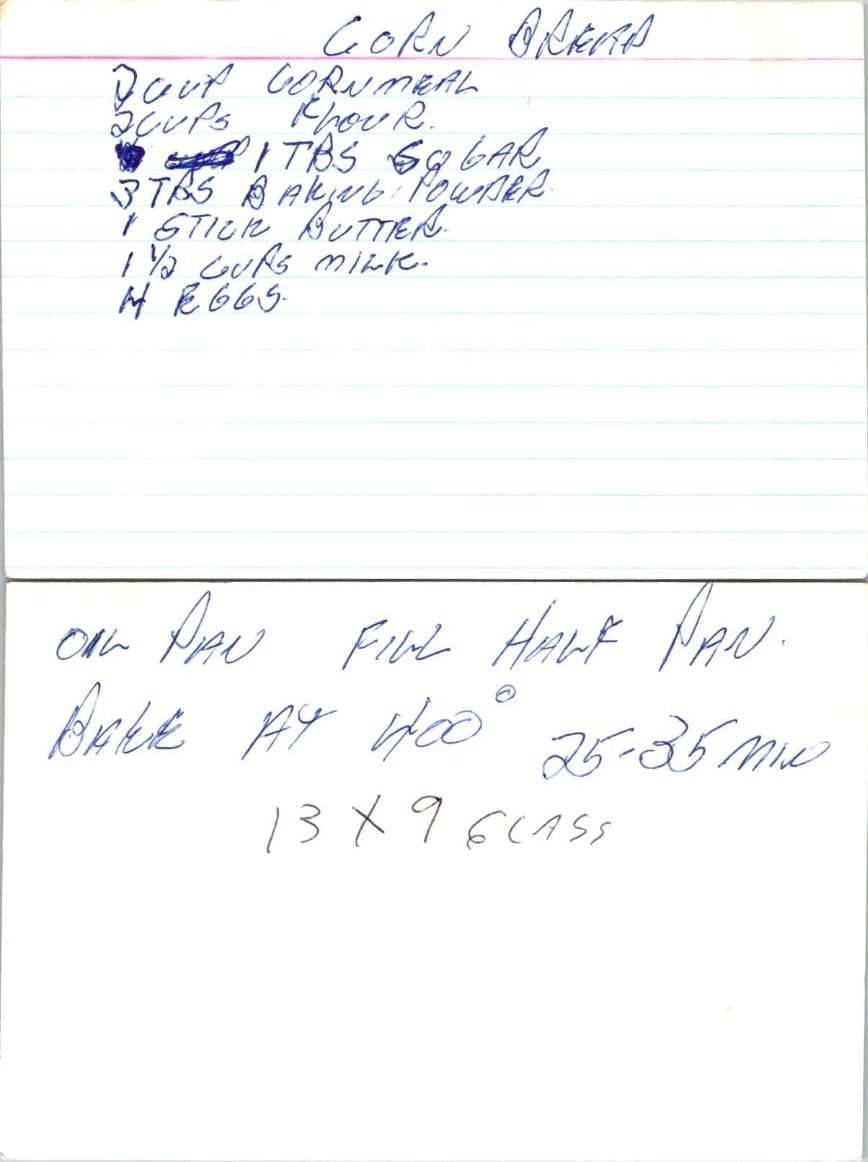 CORN BREAD
2 CUP CORNMEAL
2 CUPS FLOUR.
1 TBS SUGAR
3 TBS BAKING POWDER.
1 STICK BUTTER.
1 1/2 CUPS MILK.
4 EGGS.
OIL PAN FILL HALF PAN.
BAKE AT 400° 25-35 MIN
13 X 9 GLASS